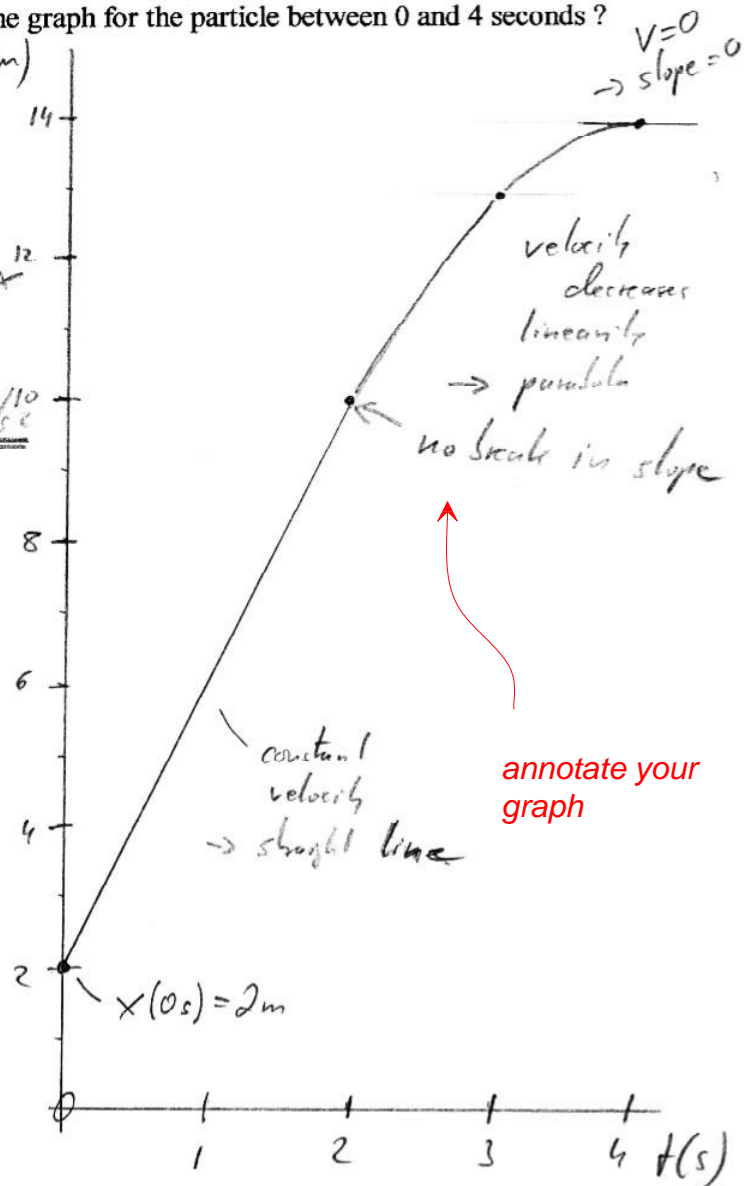 ne graph for the particle between 0 and 4 seconds ?
V=0
→ slope = 0
m)
14
12
velocity
decreases
linearily
→ parabola
/10
no break in slope
8
6
constant
velocity
→ straight line
annotate your
graph
4
2
x(0s) = 2m
0
1 2 3 4 t(s)